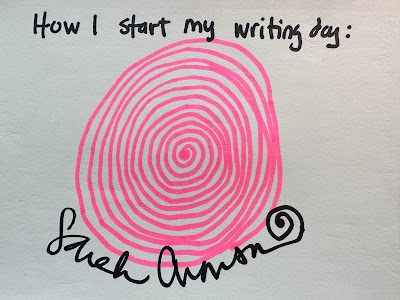 How I start my writing day:
Sarah Aronson